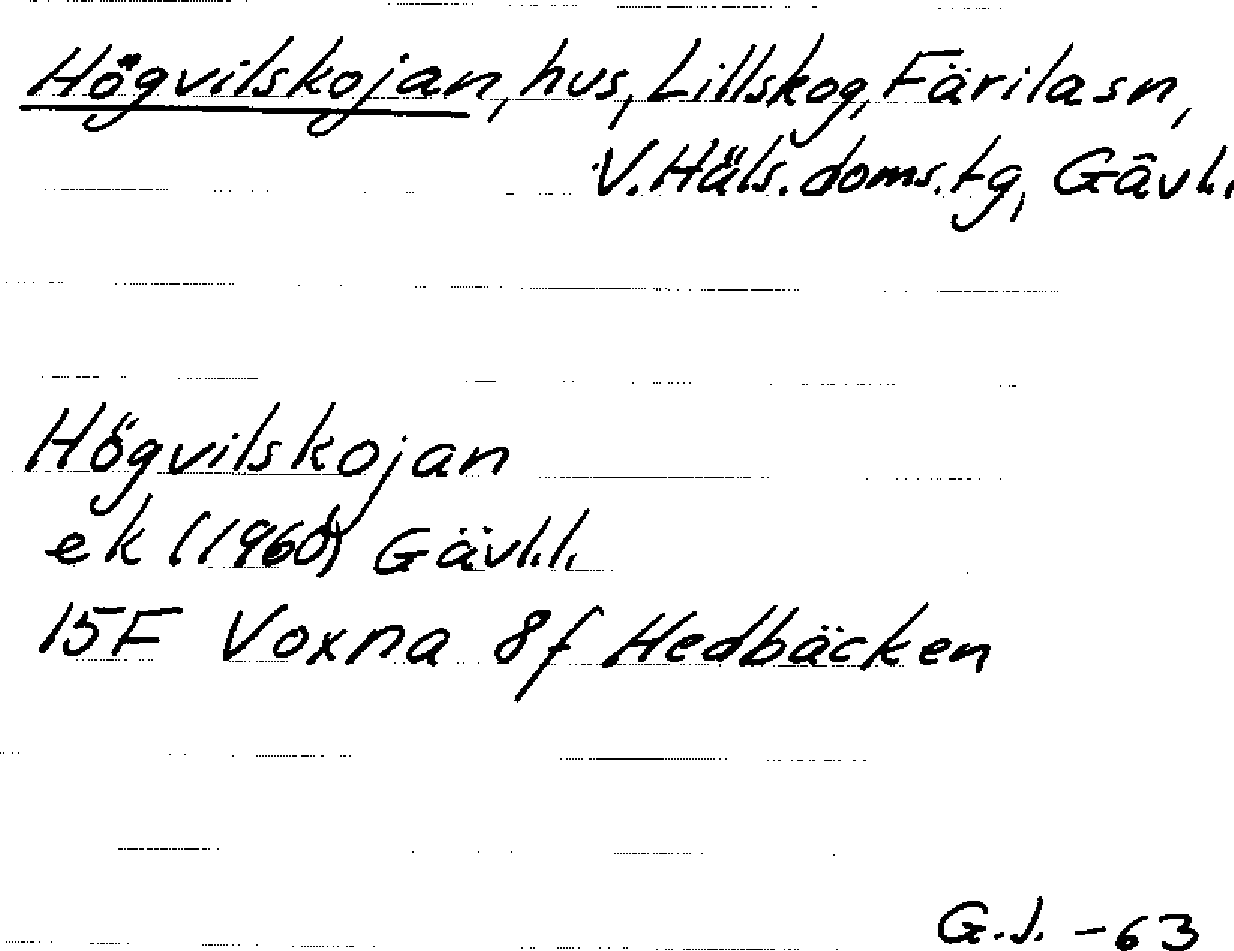 Högvilskojan, hus, Lillskog, Färila sn,
V. Häls. doms. tg, Gävl.l.
Högvilskojan
ek (1960) Gävl.l.
15F Voxna 8f Hedbäcken
G.J. -63